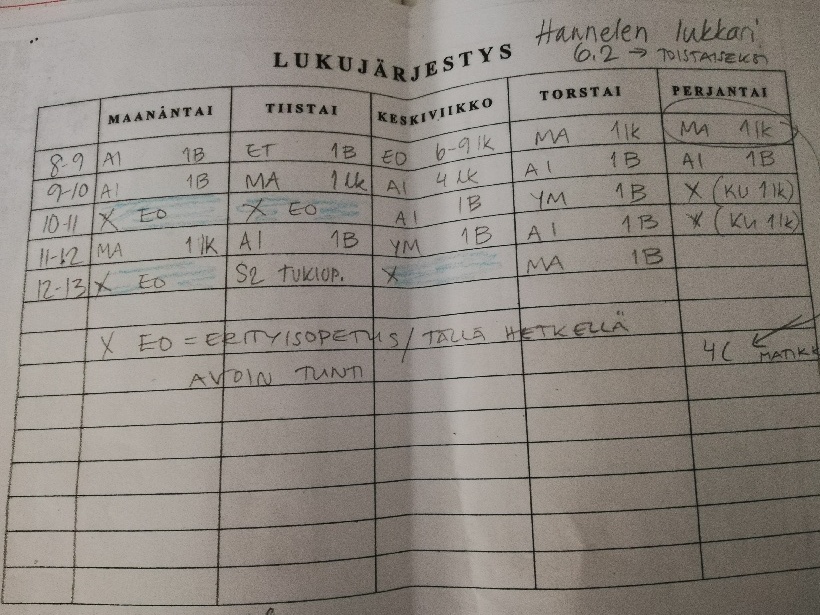 Hannelen lukkari
LUKUJÄRJESTYS 6.2 → TOISTAISEKSI
MAANANTAI TIISTAI KESKIVIIKKO TORSTAI PERJANTAI
8-9 AI 1B ET 1B EO 6-9 lk MA 1lk MA 1lk
9-10 AI 1B MA 1 lk AI 4 lk AI 1B AI 1B
10-11 X EO X EO AI 1B YM 1B X (KU 1lk)
11-12 MA 1 lk AI 1B YM 1B AI 1B X (KU 1lk)
12-13 X EO S2 TUKIOP. X MA 1B
X EO = ERITYISOPETUS / TÄLLÄ HETKELLÄ
AVOIN TUNTI
4C MATIKK